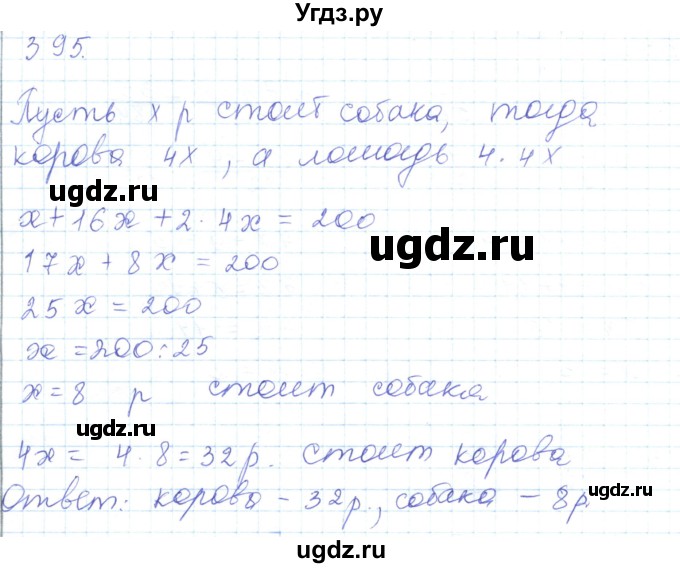 Угдз.ру
395.
Пусть х р стоит собака, тогда
корова 4х, а лошадь 4·4х
ugdz.ru
х+16х+2·4х=200
ugdz.ru
17х+8х=200
25х=200
х=200:25
х=8 р стоит собака
ugdz.ru
4х=4·8=32р. стоит корова
Ответ: корова-32р., собака-8р
ugdz.ru
ugdz.ru